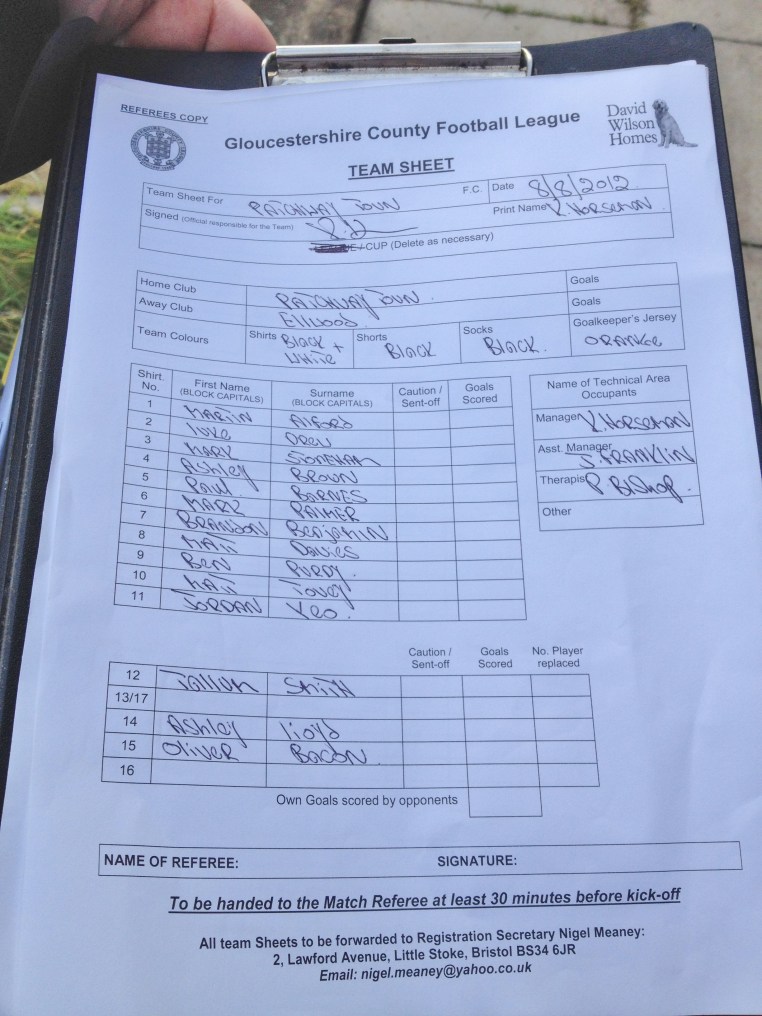 REFEREES COPY
Gloucestershire County Football League
David
Wilson
Homes
TEAM SHEET
Team Sheet For PATCHWAY TOWN F.C. Date 8/8/2012
Signed (Official responsible for the Team) Print Name V. HORSEMAN
/CUP (Delete as necessary)
Home Club PATCHWAY TOWN Goals
Away Club Ellwood Goals
Team Colours Shirts Black + White Shorts Black Socks Black. Goalkeeper's Jersey ORANGE
Shirt No. First Name (BLOCK CAPITALS) Surname (BLOCK CAPITALS) Caution / Sent-off Goals Scored
1 MARTIN Alford
2 luke DREW
3 MARK STONEHAM
4 Ashley BROWN
5 Paul BARNES
6 MARK PALMER
7 BRANDON BenjaMIN
8 MATT Davies
9 BEN PURDY.
10 MATT Tovey
11 JORDAN Yeo.
Name of Technical Area Occupants
Manager V. HORSEMAN
Asst. Manager J. FRANKLIN
Therapist P Bishop.
Other
Caution / Sent-off Goals Scored No. Player replaced
12 SMITH
13/17
14 Ashley lloyd
15 Oliver Bacon
16
Own Goals scored by opponents
NAME OF REFEREE: SIGNATURE:
To be handed to the Match Referee at least 30 minutes before kick-off
All team Sheets to be forwarded to Registration Secretary Nigel Meaney:
2, Lawford Avenue, Little Stoke, Bristol BS34 6JR
Email: nigel.meaney@yahoo.co.uk